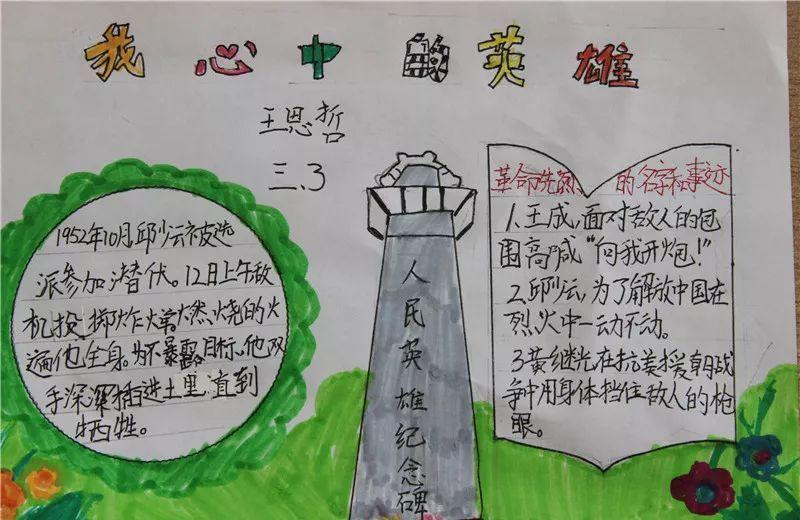 我心中的英雄
王思哲
三.3
1952年10月邱少云被选
派参加潜伏。12日上午敌
机投掷炸弹。燃烧的火
遍他全身。为不暴露目标,他双
手深深插进土里直到
牺牲。
人民英雄纪念碑
革命先烈 的名字和事迹
1.王成,面对敌人的包
围高喊“向我开炮!”
2.邱少云,为了解放中国在
烈火中一动不动。
3.黄继光在抗美援朝战
争中用身体挡住敌人的枪
眼。